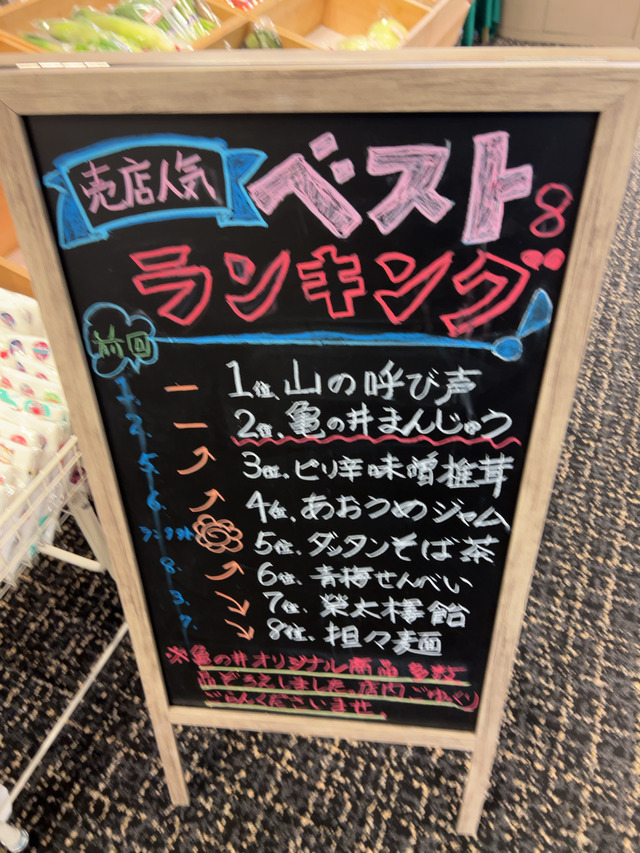 売店人気 ベスト8
ランキング!
前回
1. ー 1位、山の呼び声
2. ー 2位、亀の井まんじゅう
5. 3位、ピリ辛味噌椎茸
6. 4位、あおうめジャム
5位、ダッタンそば茶
8. 6位、青梅せんべい
3. 7位、榮太樓飴
7. 8位、担々麺
※亀の井オリジナル商品多数
品ぞろえしました。店内ごゆっくり
ごらんくださいませ。